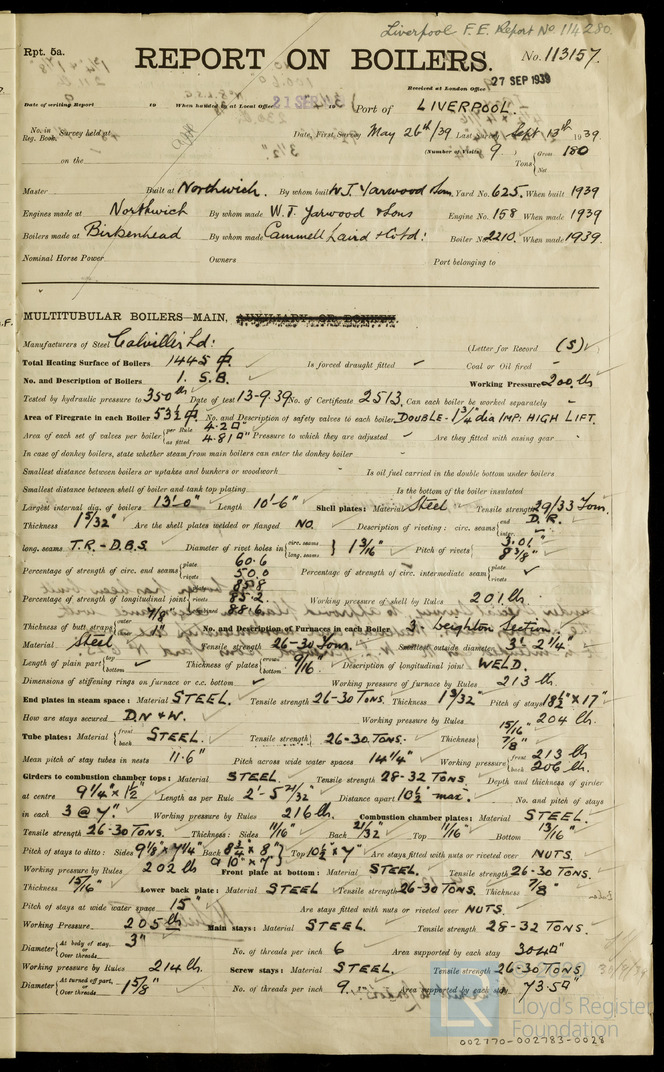 Liverpool F.E. Report No. 114280.
Rpt. 5a.
REPORT ON BOILERS.
No. 113157.
Received at London Office 27 SEP 1939
Date of writing Report 19 When handed in at Local Office 21 SEP 19 Port of LIVERPOOL.
No. in Reg. Book. Survey held at Date, First Survey May 26th/39 Last Survey Sept 13th 1939
on the (Number of Visits) 9. Tons { Gross 180 Net
Master Built at Northwich. By whom built W.J. Yarwood & Sons Yard No. 625. When built 1939
Engines made at Northwich By whom made W.J. Yarwood & Sons Engine No. 158 When made 1939
Boilers made at Birkenhead By whom made Cammell Laird & Co Ltd: Boiler No. 2210. When made 1939.
Nominal Horse Power Owners Port belonging to
MULTITUBULAR BOILERS—MAIN, AUXILIARY, OR DONKEY.
Manufacturers of Steel Colvilles Ld: (Letter for Record (S)
Total Heating Surface of Boilers 1445 Is forced draught fitted - Coal or Oil fired -
No. and Description of Boilers 1. S.B. Working Pressure 200. lb
Tested by hydraulic pressure to 350 lb Date of test 13-9.39 No. of Certificate 2513. Can each boiler be worked separately
Area of Firegrate in each Boiler 53½ No. and Description of safety valves to each boiler DOUBLE- 1¾" dia IMP: HIGH LIFT.
Area of each set of valves per boiler { per Rule 4.2□" as fitted 4.81□" Pressure to which they are adjusted - Are they fitted with easing gear -
In case of donkey boilers, state whether steam from main boilers can enter the donkey boiler
Smallest distance between boilers or uptakes and bunkers or woodwork Is oil fuel carried in the double bottom under boilers
Smallest distance between shell of boiler and tank top plating Is the bottom of the boiler insulated
Largest internal dia. of boilers 13'-0" Length 10'-6" Shell plates: Material Steel Tensile strength 29/33 Tons.
Thickness 15/32" Are the shell plates welded or flanged NO. Description of riveting: circ. seams { end D.R. inter.
long. seams T.R.-D.B.S. Diameter of rivet holes in { circ. seams long. seams } 1 3/16" Pitch of rivets { 3.01" 8 3/8"
Percentage of strength of circ. end seams { plate 60.6 rivets 50.0 Percentage of strength of circ. intermediate seam { plate rivets
Percentage of strength of longitudinal joint { plate 85.8 rivets 85.2 combined 88.6 Working pressure of shell by Rules 201 lb.
Thickness of butt straps { outer 7/8" inner 1" No. and Description of Furnaces in each Boiler 3. Leighton Section.
Material Steel Tensile strength 26-30 Tons. Smallest outside diameter 3'. 2¼"
Length of plain part { top bottom Thickness of plates { crown bottom 9/16" Description of longitudinal joint WELD.
Dimensions of stiffening rings on furnace or c.c. bottom Working pressure of furnace by Rules 213 lb.
End plates in steam space: Material STEEL. Tensile strength 26-30 TONS. Thickness 1 3/32" Pitch of stays 18½" x 17"
How are stays secured D.N & W. Working pressure by Rules 204 lb.
Tube plates: Material { front back STEEL. Tensile strength { 26-30.TONS. Thickness { 15/16" 7/8"
Mean pitch of stay tubes in nests 11.6" Pitch across wide water spaces 14¼" Working pressure { front 213 lb back 206 lb.
Girders to combustion chamber tops: Material STEEL. Tensile strength 28-32 TONS Depth and thickness of girder
at centre 9¼" x 1½" Length as per Rule 2'-5 21/32" Distance apart 10½" max. No. and pitch of stays
in each 3 @ 7". Working pressure by Rules 216 lb. Combustion chamber plates: Material STEEL.
Tensile strength 26-30 TONS. Thickness: Sides 11/16" Back 21/32" Top 11/16" Bottom 13/16"
Pitch of stays to ditto: Sides 9⅛" x 7¼" Back 8¾" x 8" & 10" x 7" } Top 10½" x 7" Are stays fitted with nuts or riveted over NUTS.
Working pressure by Rules 202 lb Front plate at bottom: Material STEEL. Tensile strength 26-30 TONS.
Thickness 15/16" Lower back plate: Material STEEL Tensile strength 26-30 TONS. Thickness 7/8"
Pitch of stays at wide water space 15" Are stays fitted with nuts or riveted over NUTS.
Working Pressure 205 lb Main stays: Material STEEL. Tensile strength 28-32 TONS.
Diameter { At body of stay, or Over threads 3" No. of threads per inch 6 Area supported by each stay 304□"
Working pressure by Rules 214 lb. Screw stays: Material STEEL. Tensile strength 26-30 TONS
Diameter { At turned off part, or Over threads 1 5/8" No. of threads per inch 9. Area supported by each stay 73.5□"
LR
Lloyd's Register
Foundation
002770-002783-0028